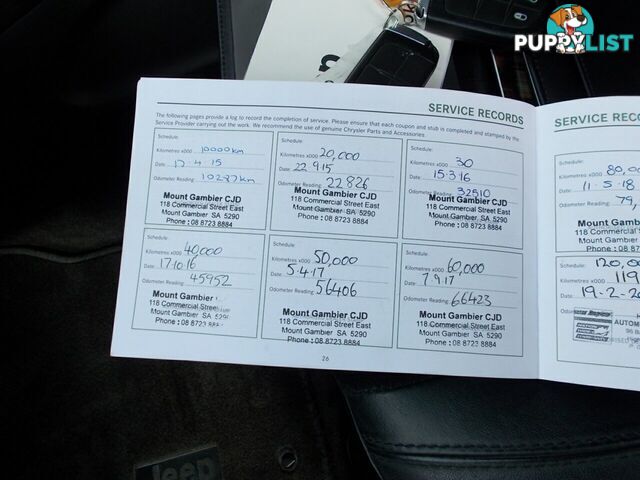 PUPPYLIST
SERVICE RECORDS
The following pages provide a log to record the completion of service. Please ensure that each coupon and stub is completed and stamped by the
Service Provider carrying out the work. We recommend the use of genuine Chrysler Parts and Accessories.
Schedule:
Kilometres x000 10000km
Date: 17.4.15
Odometer Reading: 10237km
Mount Gambier CJD
118 Commercial Street East
Mount Gambier SA 5290
Phone : 08 8723 8884
Schedule:
Kilometres x000 20,000
Date: 22.9.15
Odometer Reading: 22826
Mount Gambier CJD
118 Commercial Street East
Mount Gambier SA 5290
Phone : 08 8723 8884
Schedule:
Kilometres x000 30
Date: 15.3.16
Odometer Reading: 32510
Mount Gambier CJD
118 Commercial Street East
Mount Gambier SA 5290
Phone : 08 8723 8884
Schedule:
Kilometres x000 40,000
Date: 17.10.16
Odometer Reading: 45952
Mount Gambier
118 Commercial
Mount Gambier SA
Phone : 08 8723
Schedule:
Kilometres x000 50,000
Date: 5.4.17
Odometer Reading: 56406
Mount Gambier CJD
118 Commercial Street East
Mount Gambier SA 5290
Phone : 08 8723 8884
Schedule:
Kilometres x000 60,000
Date: 7.9.17
Odometer Reading: 66423
Mount Gambier CJD
118 Commercial Street East
Mount Gambier SA 5290
Phone : 08 8723 8884
26
SERVICE RECORDS
Schedule:
Kilometres x000 80,0
Date: 11.5.18
Odometer Reading: 79,
Mount Gambi
118 Commercial
Mount Gambier
Phone : 08
Schedule: 120,0
Kilometres x000 119
Date: 19-2-20
Odometer Reading
AUTOM
Jeep